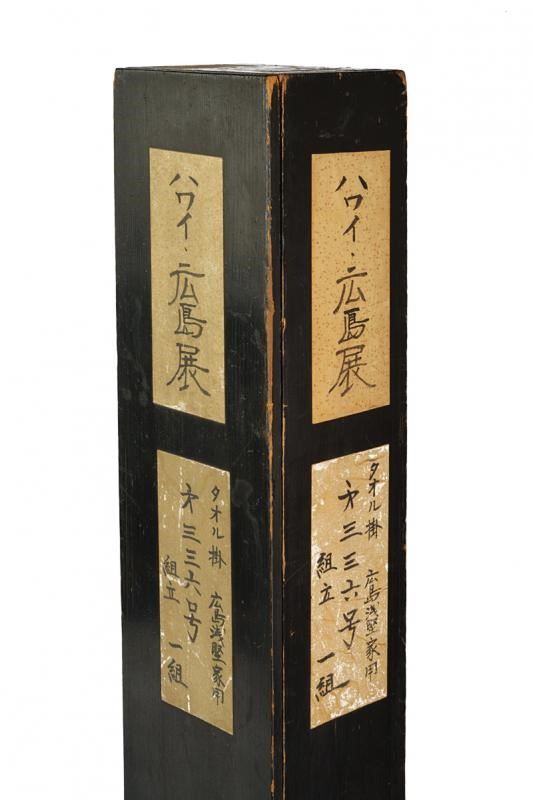 ハワイ・広島展
タオル掛 広島浅野家用
才三三六号
組立 一組
ハワイ・広島展
タオル掛 広島浅野家用
才三三六号
組立 一組